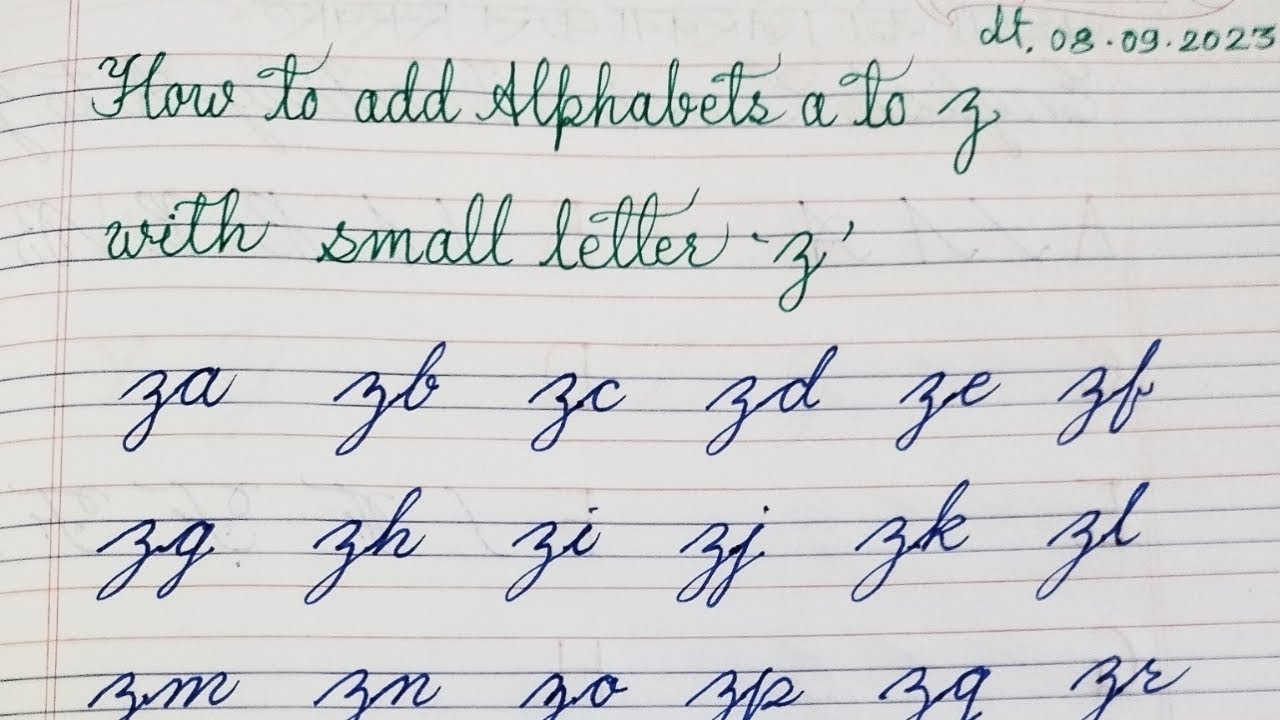 dt. 08.09.2023
How to add Alphabets a to z
with small letter 'z'
za zb zc zd ze zf
zg zh zi zj zk zl
zm zn zo zp zq zr